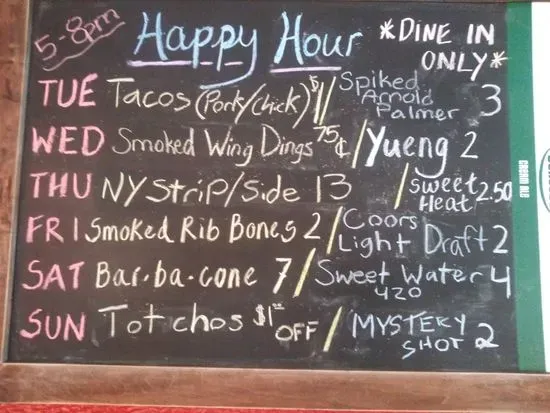 5-8pm Happy Hour *DINE IN ONLY*
TUE Tacos (Pork/Chick) $1/ Spiked Arnold Palmer 3
WED Smoked Wing Dings 75¢/Yueng 2
THU NY Strip/Side 13 / Sweet Heat 2.50
FRI Smoked Rib Bones 2/ Coors Light Draft 2
SAT Bar-ba-cone 7/ Sweet Water 420 4
SUN Totchos $1.00 OFF / MYSTERY SHOT 2
CREAM ALE